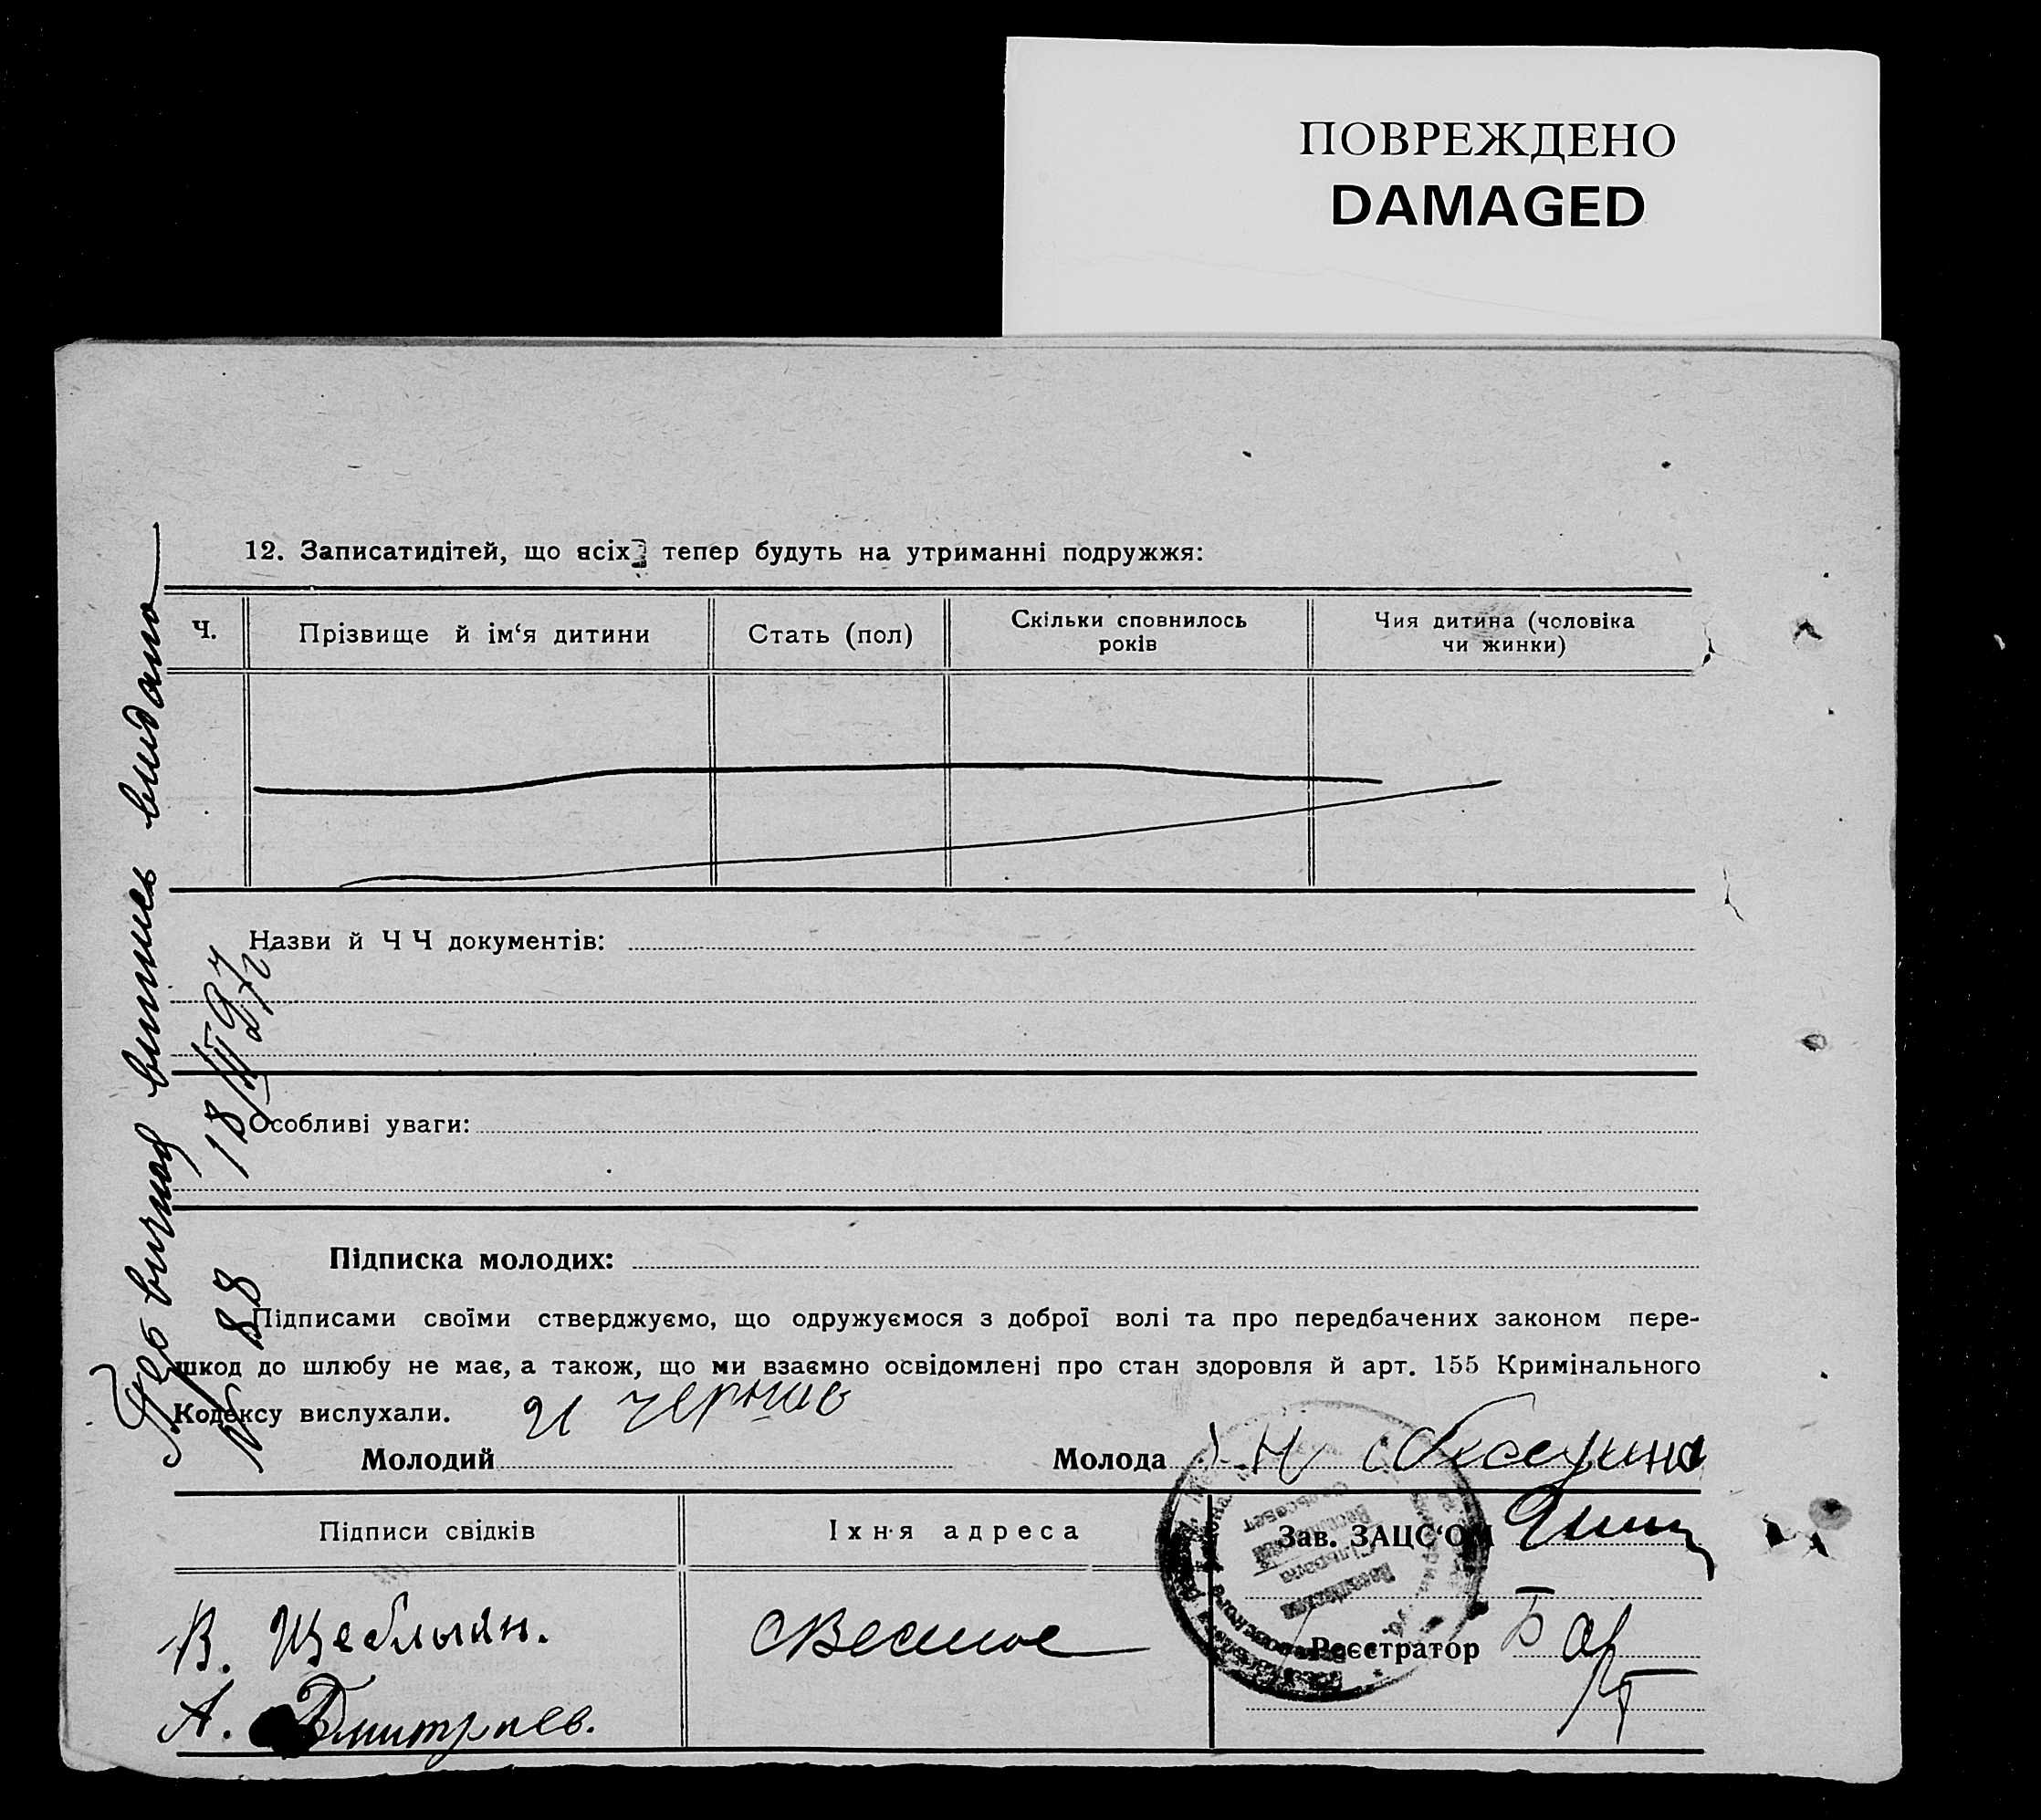 ПОВРЕЖДЕНО
DAMAGED
12. Записатидітей, що всіх тепер будуть на утриманні подружжя:
Ч.
Прізвище й ім‘я дитини
Стать (пол)
Скільки сповнилось
років
Чия дитина (чоловіка
чи жинки)
Назви й Ч Ч документів:
Особливі уваги:
Підписка молодих:
Підписами своїми стверджуємо, що одружуємося з доброї волі та про передбачених законом пере-
шкод до шлюбу не має, а також, що ми взаємно освідомлені про стан здоровля й арт. 155 Кримінального
Кодексу вислухали.
Молодий
Молода
Підписи свідків
Їхня адреса
Зав. ЗАЦС‘ОМ
В. Щеблыкин.
А. Дмитриев.
с Веселое
Реєстратор
Бар
випись видано
18/III 27
№ 88